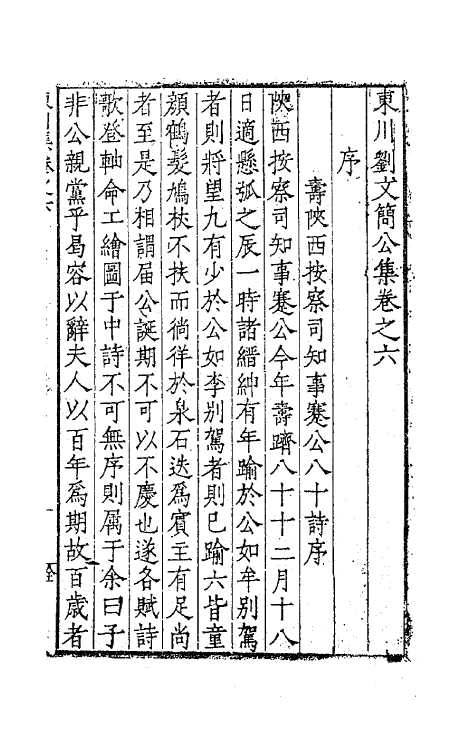 東川劉文簡公集卷之六
序
壽陝西按察司知事蹇公八十詩序
陝西按察司知事蹇公今年壽躋八十十二月十八
日適懸弧之辰一時諸縉紳有年踰於公如牟别駕
者則將望九有少於公如李别駕者則已踰六皆童
顔鶴髮鳩杖不扶而徜徉於泉石迭爲賓主有足尚
者至是乃相謂届公誕期不可以不慶也遂各賦詩
歌登軸命工繪圖于中詩不可無序則属于余曰子
非公親黨乎曷容以辭夫人以百年爲期故百歲者